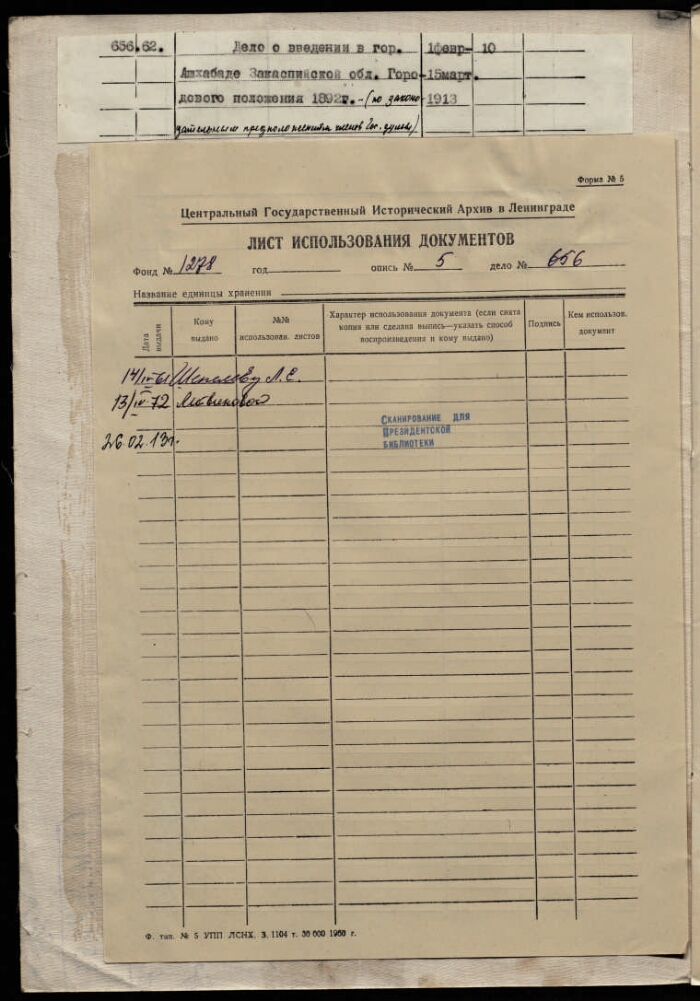 656.62. Дело о введении в гор. 1февр- 10
Ашхабаде Закаспийской обл. Горо- 15март.
дового положения 1892г. - (по законо 1913
дательным предположениям членов Гос. думы)
Форма № 5
Центральный Государственный Исторический Архив в Ленинграде
ЛИСТ ИСПОЛЬЗОВАНИЯ ДОКУМЕНТОВ
Фонд № 1278 год опись № 5 дело № 656
Название единицы хранения
Дата выдачи
Кому выдано
№№ использован. листов
Характер использования документа (если снята
копия или сделана выпись—указать способ
воспроизведения и кому выдано)
Подпись
Кем использов. документ
14/IV-61 Л. Е.
13/IV 72
26.02.13г.
Сканирование для
Президентской
библиотеки
Ф. тип. № 5 УПП ЛСНХ. З. 1104 т. 30 000 1960 г.